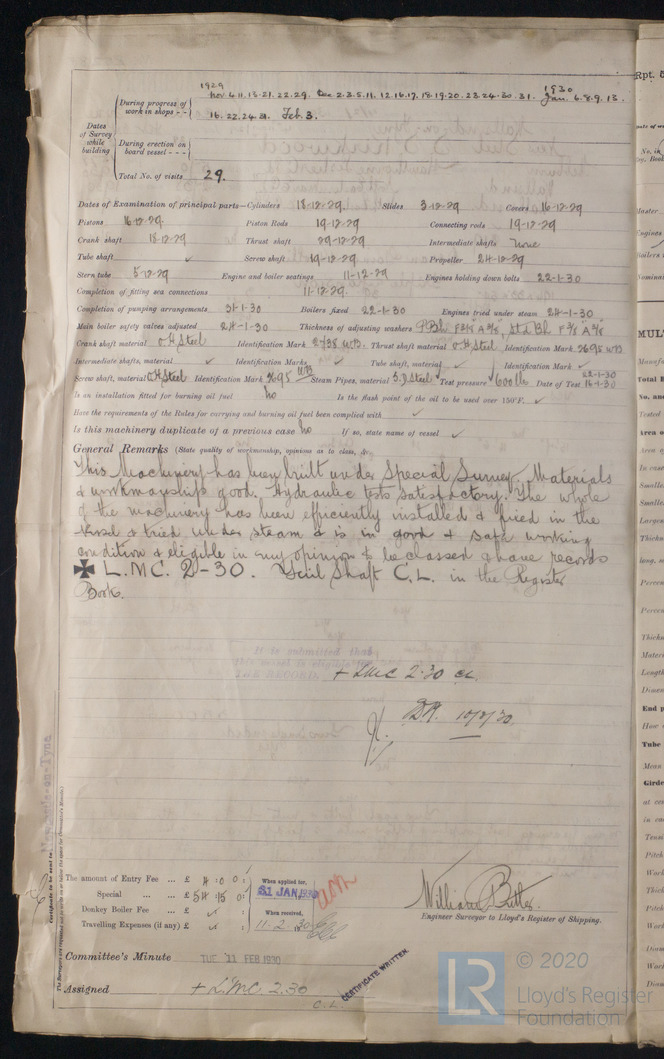 1929 1930
During progress of work in shops - - Nov. 4. 11. 13. 21. 22. 29. Dec 2. 3. 5. 11. 12. 16. 17. 18. 19. 20. 23. 24. 30. 31. Jan. 6. 8. 9. 13.
16. 22. 24. 31. Feb. 3.
Dates of Survey while building
During erection on board vessel - - -
Total No. of visits 29.
Dates of Examination of principal parts—Cylinders 18-12-29 Slides 3-12-29 Covers 16-12-29
Pistons 16-12-29 Piston Rods 19-12-29 Connecting rods 19-12-29
Crank shaft 18-12-29 Thrust shaft 29-12-29 Intermediate shafts None
Tube shaft ✓ Screw shaft 19-12-29 Propeller 24-12-29
Stern tube 5-12-29 Engine and boiler seatings 11-12-29 Engines holding down bolts 22-1-30
Completion of fitting sea connections 11-12-29
Completion of pumping arrangements 31-1-30 Boilers fixed 22-1-30 Engines tried under steam 24-1-30
Main boiler safety valves adjusted 24-1-30 Thickness of adjusting washers
Crank shaft material O.H Steel Identification Mark 2735 W.B. Thrust shaft material O.H Steel Identification Mark 3695 W.B
Intermediate shafts, material ✓ Identification Marks ✓ Tube shaft, material ✓ Identification Mark ✓
Screw shaft, material O.H Steel Identification Mark 3695 W.B Steam Pipes, material S.D Steel Test pressure 600 lb Date of Test 22-1-30 16-1-30
Is an installation fitted for burning oil fuel no Is the flash point of the oil to be used over 150°F. ✓
Have the requirements of the Rules for carrying and burning oil fuel been complied with ✓
Is this machinery duplicate of a previous case no If so, state name of vessel ✓
General Remarks (State quality of workmanship, opinions as to class, &c.
This Machinery has been built under Special Survey, Materials
& workmanship good. Hydraulic tests satisfactory. The whole
of the machinery has been efficiently installed & fixed in the
vessel & tried under steam & is in good & safe working
condition & eligible in my opinion to be classed & have records
✠ L.M.C. 2-30. Tail Shaft C.L. in the Register
Book.
It is submitted that
this vessel is eligible for
THE RECORD.
+ LMC 2.30 CL
10/2/30
Newcastle-on-Tyne
Certificate to be sent to
The amount of Entry Fee ... £ 4 : 0 : 0 :
Special ... ... £ 54 : 15 : 0 :
Donkey Boiler Fee ... £ ✓ :
Travelling Expenses (if any) £ ✓ :
When applied for,
31 JAN 1930
When received,
11. 2. 30
William Butler.
Engineer Surveyor to Lloyd's Register of Shipping.
Committee's Minute TUE 11 FEB 1930
Assigned + L.M.C. 2.30
C.L.
CERTIFICATE WRITTEN.
LR
© 2020
Lloyd's Register
Foundation
Rpt. 5
MULT